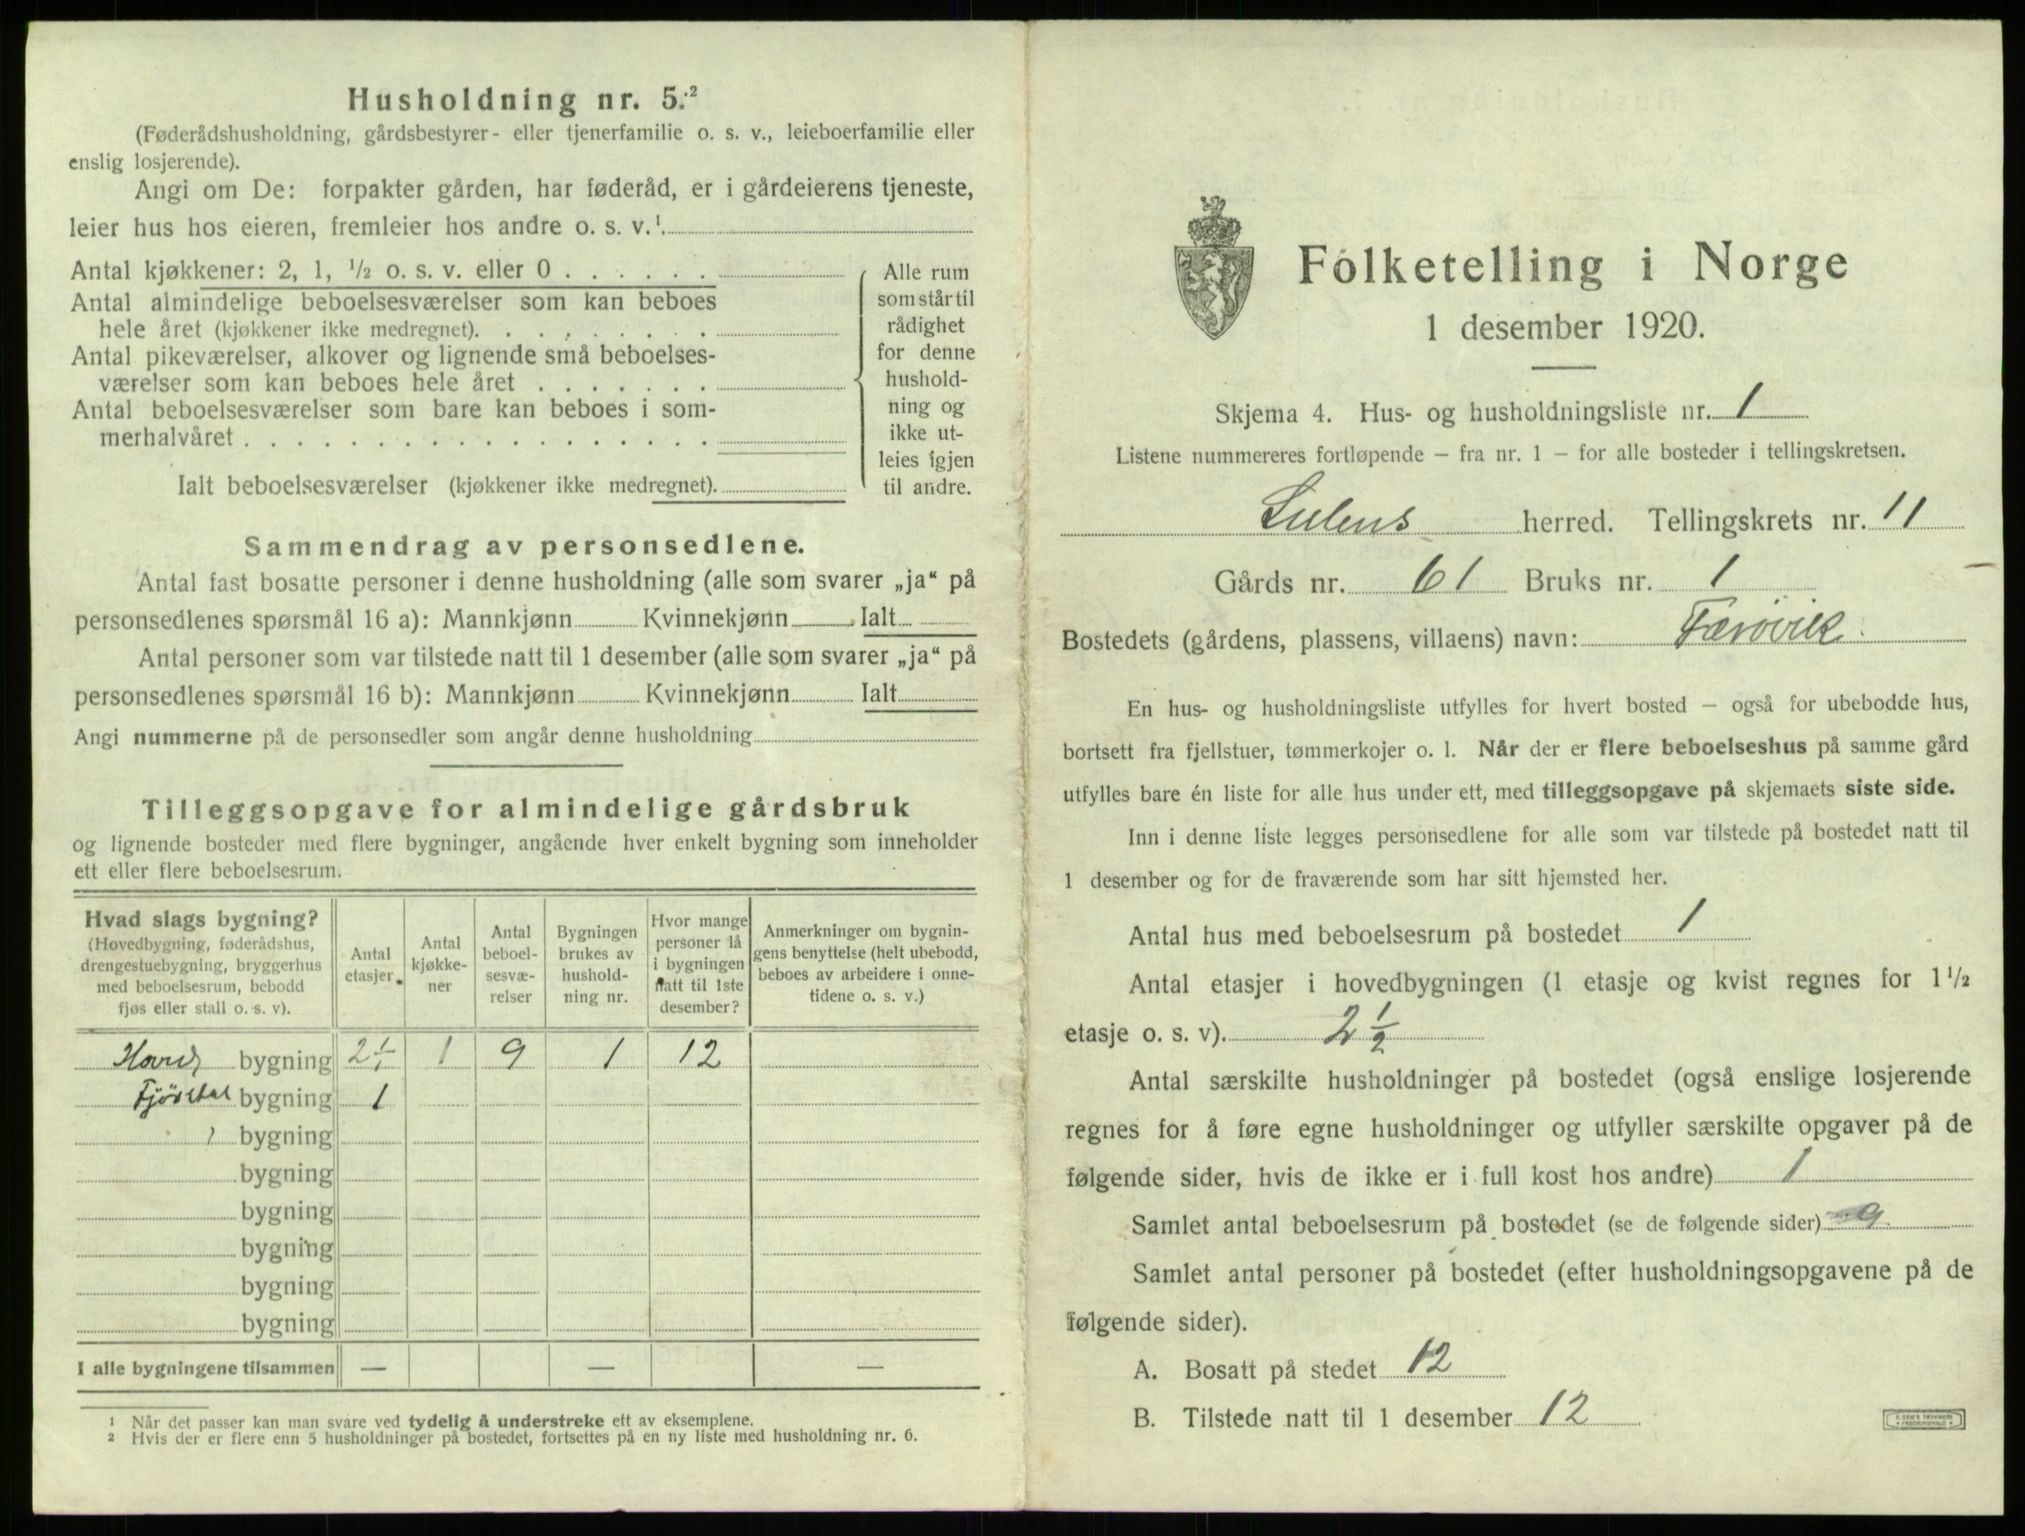 Husholdning nr. 5.²
(Føderådshusholdning, gårdsbestyrer- eller tjenerfamilie o. s. v., leieboerfamilie eller
enslig losjerende).
Angi om De: forpakter gården, har føderåd, er i gårdeierens tjeneste,
leier hus hos eieren, fremleier hos andre o. s. v.¹
Antal kjøkkener: 2, 1, ½ o. s. v. eller 0 . . . . . .
Antal almindelige beboelsesværelser som kan beboes
hele året (kjøkkener ikke medregnet). . . . . . . . .
Antal pikeværelser, alkover og lignende små beboelses-
værelser som kan beboes hele året . . . . . . .
Antal beboelsesværelser som bare kan beboes i som-
merhalvåret . . . . . . . . . . . . . . . . . .
Ialt beboelsesværelser (kjøkkener ikke medregnet).
Alle rum
som står til
rådighet
for denne
hushold-
ning og
ikke ut-
leies igjen
til andre.
Sammendrag av personsedlene.
Antal fast bosatte personer i denne husholdning (alle som svarer „ja“ på
personsedlenes spørsmål 16 a): Mannkjønn Kvinnekjønn Ialt
Antal personer som var tilstede natt til 1 desember (alle som svarer „ja“ på
personsedlenes spørsmål 16 b): Mannkjønn Kvinnekjønn Ialt
Angi nummerne på de personsedler som angår denne husholdning
Tilleggsopgave for almindelige gårdsbruk
og lignende bosteder med flere bygninger, angående hver enkelt bygning som inneholder
ett eller flere beboelsesrum.
Hvad slags bygning?
(Hovedbygning, føderådshus,
drengestuebygning, bryggerhus
med beboelsesrum, bebodd
fjøs eller stall o. s. v).
Antal
etasjer.
Antal
kjøkke-
ner
Antal
beboel-
sesvæ-
relser
Bygningen
brukes av
hushold-
ning nr.
Hvor mange
personer lå
i bygningen
natt til 1ste
desember?
Anmerkninger om bygnin-
gens benyttelse (helt ubebodd,
beboes av arbeidere i onne-
tidene o. s. v.)
Hoved bygning 2 1 9 1 12
bygning 1
bygning
bygning
bygning
bygning
bygning
bygning
I alle bygningene tilsammen — — —
¹ Når det passer kan man svare ved tydelig å understreke ett av eksemplene.
² Hvis der er flere enn 5 husholdninger på bostedet, fortsettes på en ny liste med husholdning nr. 6.
Folketelling i Norge
1 desember 1920.
Skjema 4. Hus- og husholdningsliste nr. 1
Listene nummereres fortløpende – fra nr. 1 – for alle bosteder i tellingskretsen.
Sulens herred. Tellingskrets nr. 11
Gårds nr. 61 Bruks nr. 1
Bostedets (gårdens, plassens, villaens) navn: Færøvik
En hus- og husholdningsliste utfylles for hvert bosted – også for ubebodde hus,
bortsett fra fjellstuer, tømmerkojer o. l. Når der er flere beboelseshus på samme gård
utfylles bare én liste for alle hus under ett, med tilleggsopgave på skjemaets siste side.
Inn i denne liste legges personsedlene for alle som var tilstede på bostedet natt til
1 desember og for de fraværende som har sitt hjemsted her.
Antal hus med beboelsesrum på bostedet 1
Antal etasjer i hovedbygningen (1 etasje og kvist regnes for 1½
etasje o. s. v). 2½
Antal særskilte husholdninger på bostedet (også enslige losjerende
regnes for å føre egne husholdninger og utfyller særskilte opgaver på de
følgende sider, hvis de ikke er i full kost hos andre) 1
Samlet antal beboelsesrum på bostedet (se de følgende sider) 9
Samlet antal personer på bostedet (efter husholdningsopgavene på de
følgende sider).
A. Bosatt på stedet 12
B. Tilstede natt til 1 desember 12